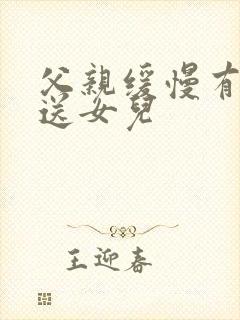 父親缓慢有
送女兒
王迎春